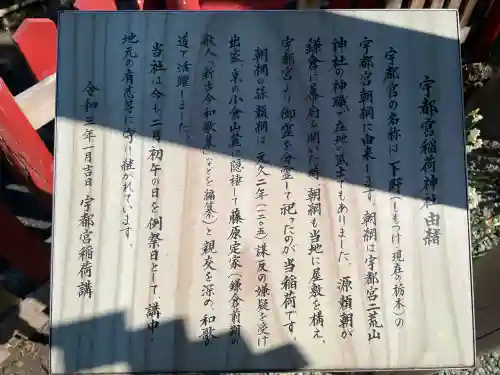 宇都宮稲荷神社由緒
宇都宮の名称は下野(しもつけ・現在の栃木)の
宇都宮朝綱に由来します。朝綱は宇都宮二荒山
神社の神職で在地の武士でもありました。源頼朝が
鎌倉に幕府を開いた時、朝綱も当地に屋敷を構え、
宇都宮より御霊を分霊して祀ったのが当稲荷です。
朝綱の孫頼綱は元久二年(一二〇五)謀反の嫌疑を受け
出家、京の小倉山麓に隠棲して藤原定家(鎌倉前期の
歌人・新古今和歌集などを編纂)と親交を深め、和歌の
道で活躍しました。
当社は今も二月初午の日を例祭日として、講中・
地元の有志等に守り継がれています。
令和三年一月吉日 宇都宮稲荷講